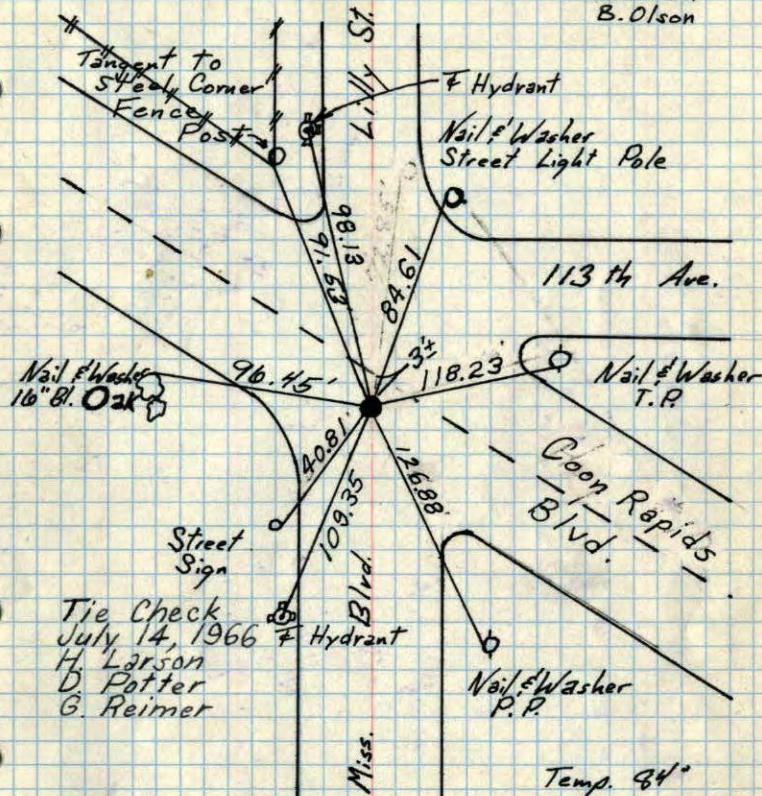 B. Olson
Tangent to
Steel Corner
Fence
Post
Lilly St.
⅊ Hydrant
Nail & Washer
Street Light Pole
98.13
91.53'
72.85'
84.61
113 th Ave.
3'±
118.23
Nail & Washer
T.P.
Nail & Washer
16" Bl. Oak
96.45'
40.81'
109.35
126.88'
Coon Rapids
Blvd.
Street
Sign
Tie Check
July 14, 1966
H. Larson
D. Potter
G. Reimer
⅊ Hydrant
Miss. Blvd.
Nail & Washer
P.P.
Temp. 84°